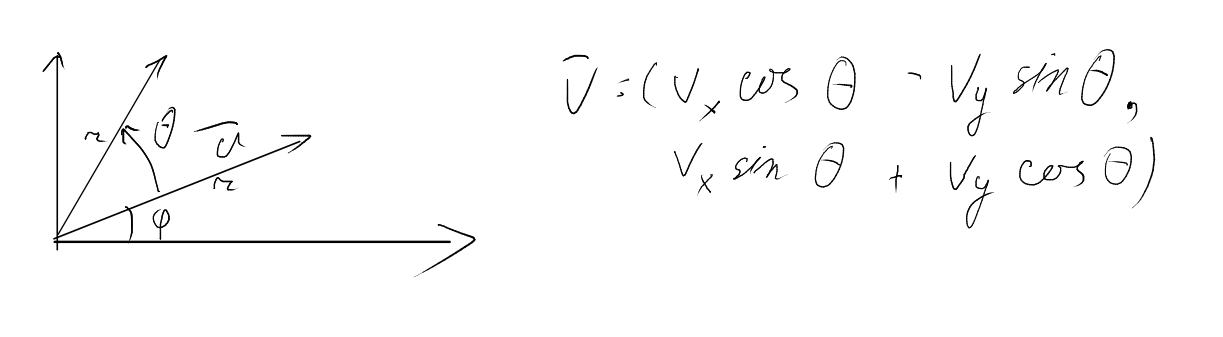 r θ v̄
r
φ
v̄ = (Vx cos θ - Vy sin θ,
Vx sin θ + Vy cos θ)